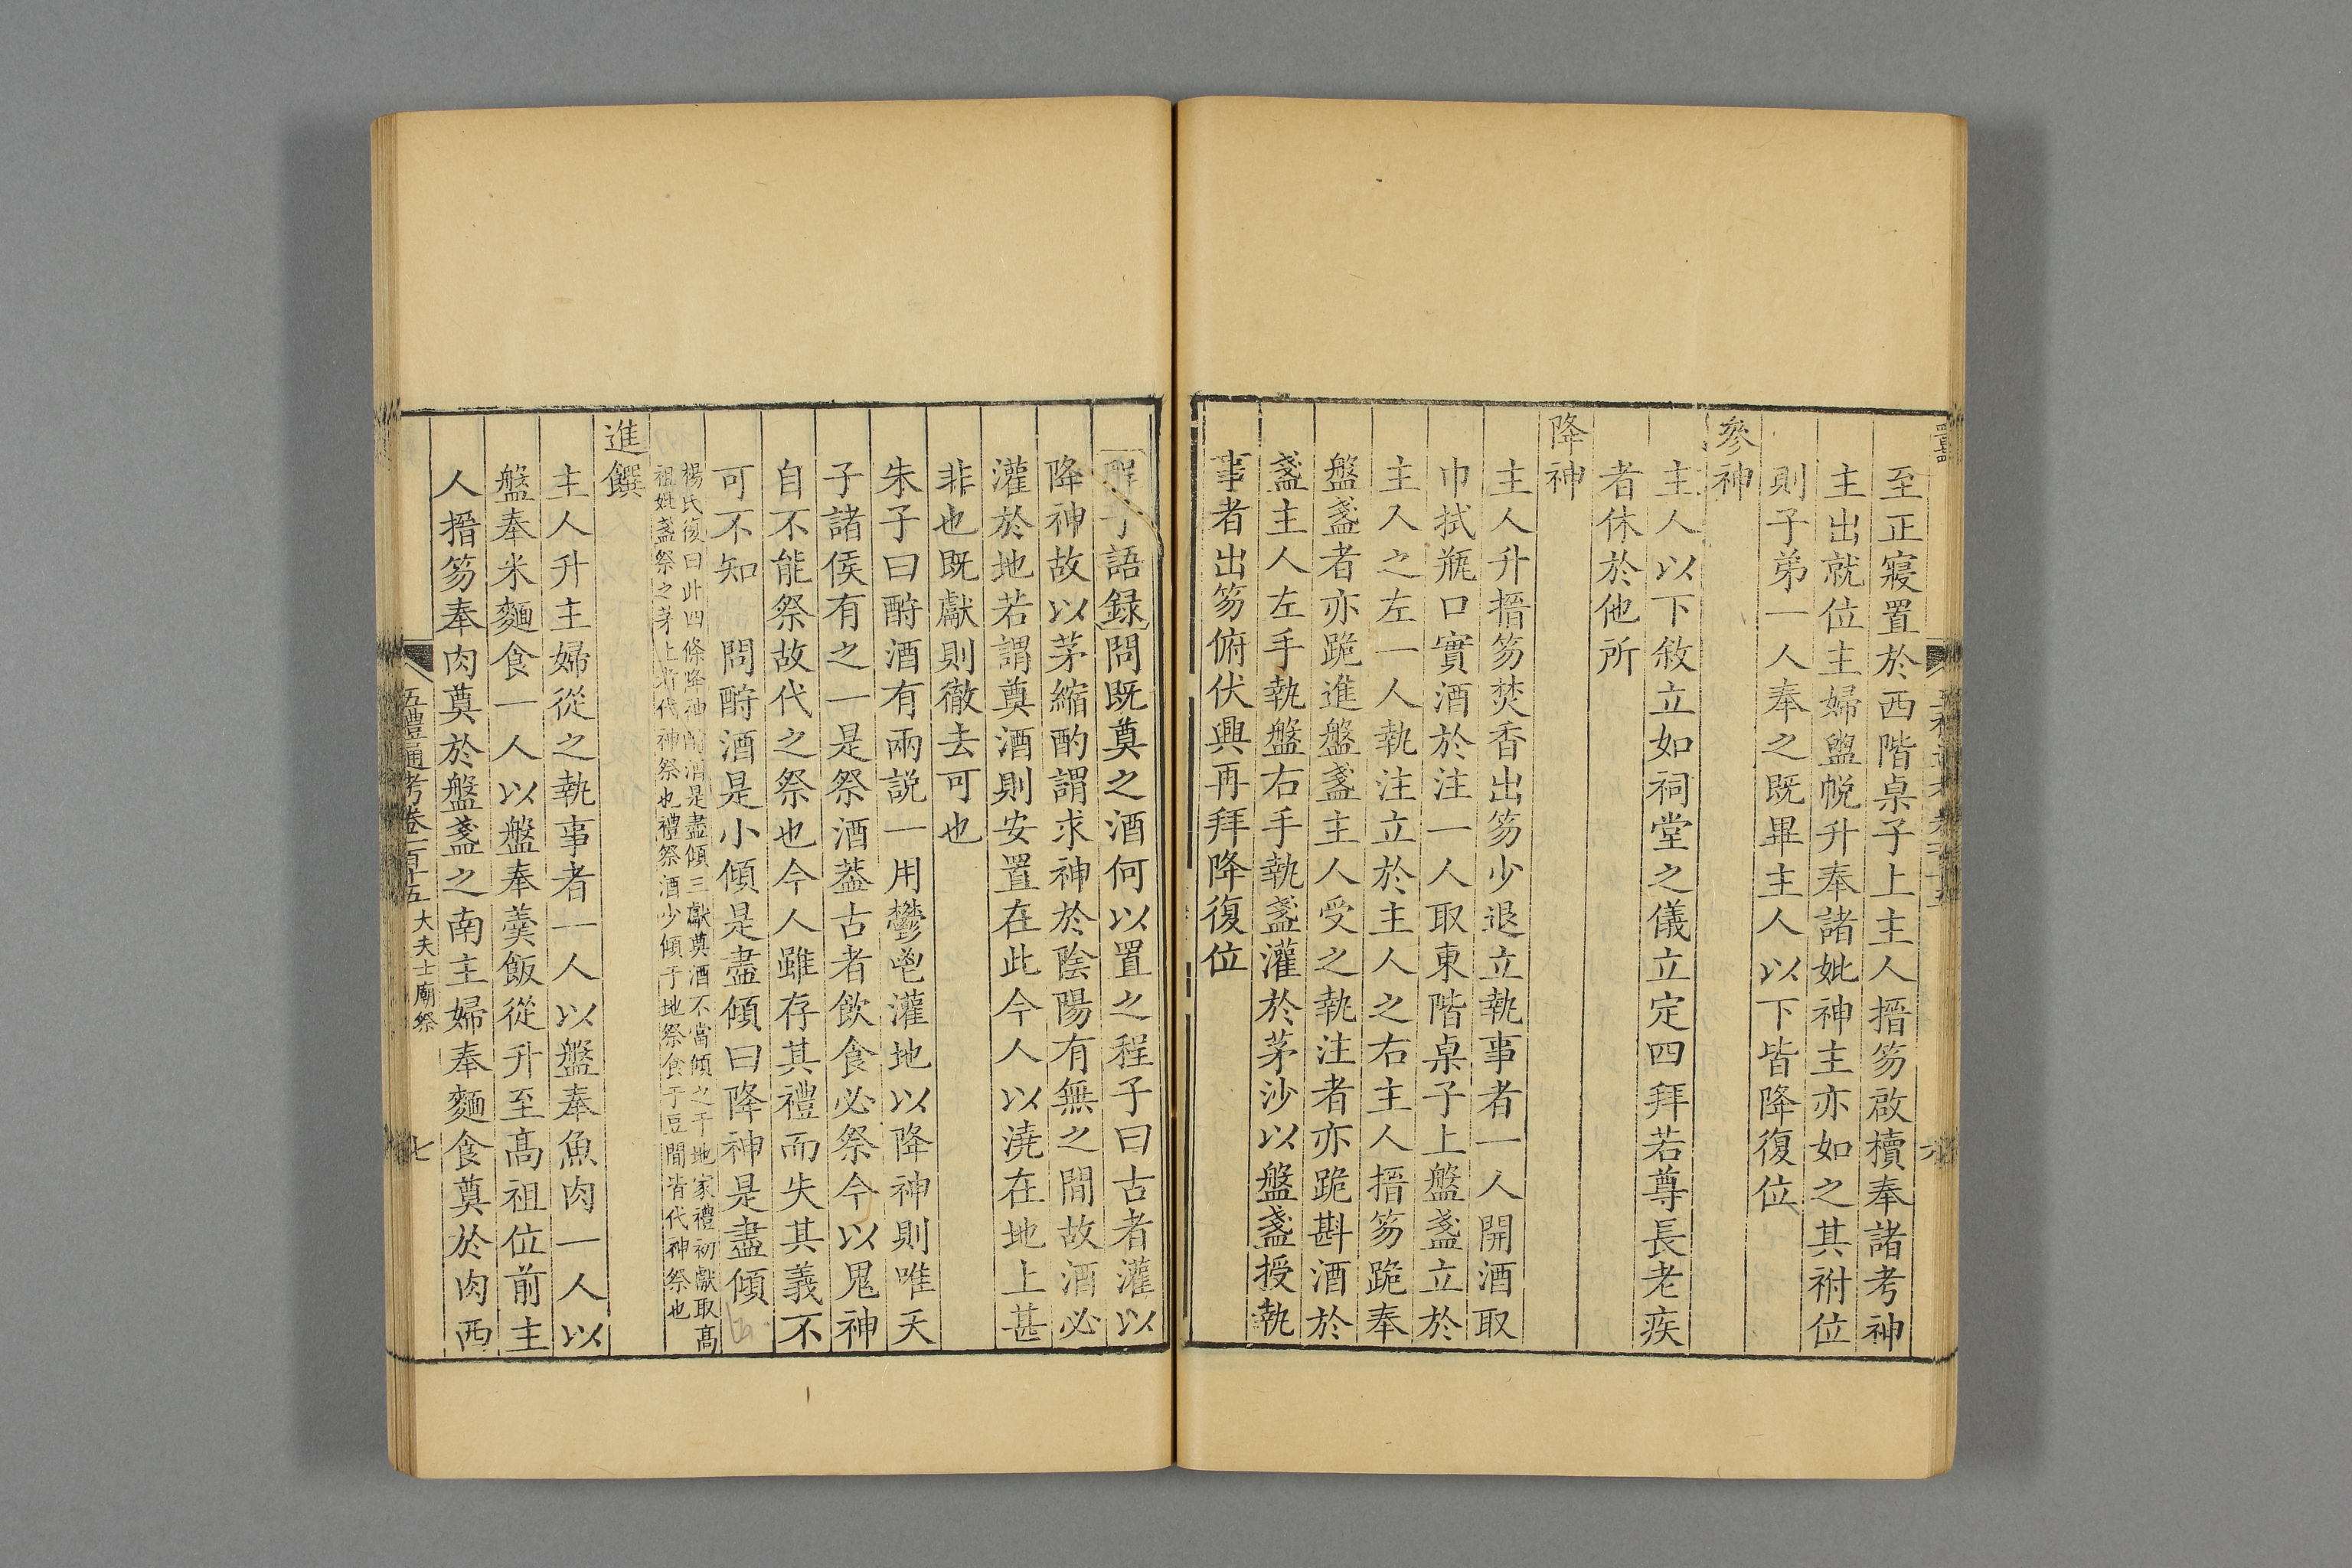 至正寢置於西階桌子上主人搢笏啟櫝奉諸考神
主出就位主婦盥帨升奉諸妣神主亦如之其祔位
則子弟一人奉之既畢主人以下皆降復位
參神
主人以下敘立如祠堂之儀立定四拜若尊長老疾
者休於他所
降神
主人升搢笏焚香出笏少退立執事者一人開酒取
巾拭瓶口實酒於注一人取東階桌子上盤盞立於
主人之左一人執注立於主人之右主人搢笏跪奉
盤盞者亦跪進盤盞主人受之執注者亦跪斟酒於
盞主人左手執盤右手執盞灌於茅沙以盤盞授執
事者出笏俯伏興再拜降復位
程子語録問既奠之酒何以置之程子曰古者灌以
降神故以茅縮酌謂求神於陰陽有無之間故酒必
灌於地若謂奠酒則安置在此今人以澆在地上甚
非也既獻則徹去可也
朱子曰酹酒有兩説一用鬱鬯灌地以降神則唯天
子諸侯有之一是祭酒葢古者飲食必祭今以鬼神
自不能祭故代之祭也今人雖存其禮而失其義不
可不知　問酹酒是小傾是盡傾曰降神是盡傾
楊氏復曰此四條降神酹酒是盡傾三獻奠酒不當傾之于地家禮初獻取髙
祖妣盞祭之茅上者代神祭也禮祭酒少傾于地祭食于豆間皆代神祭也
進饌
主人升主婦從之執事者一人以盤奉魚肉一人以
盤奉米麵食一人以盤奉羹飯從升至髙祖位前主
人搢笏奉肉奠於盤盞之南主婦奉麵食奠於肉西
五禮通考卷一百十五 大夫士廟祭 七